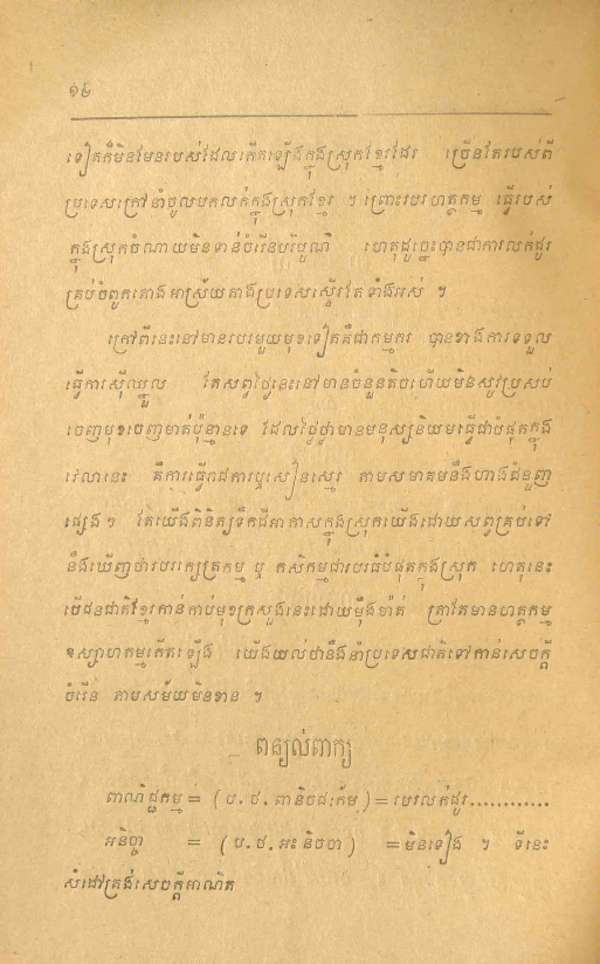 ១៤
ទៀតក៏មិនមែនរបស់ដែលកើតឡើងក្នុងស្រុកខ្មែរដែរ ច្រើនតែរបស់ពី
ប្រទេសក្រៅនាំចូលមកលក់ក្នុងស្រុកខ្មែរ ។ ព្រោះរបរហត្ថកម្ម ធ្វើរបស់
ក្នុងស្រុកចំណាយមិនទាន់ចំរើនបរិបូណ៌ ហេតុដូច្នេះបានជាការលក់ដូរ
គ្រប់ចំពូកតោងអាស្រ័យខាងប្រទេសស្ទើរតែទាំងអស់ ។
ក្រៅពីនេះនៅមានរបរមួយមុខទៀតគឺជាកម្មករ បានខាងការទទួល
ធ្វើការស៊ីឈ្នួល តែសព្វថ្ងៃនេះនៅមានចំនួនតិចហើយមិនសូវប្រសប់
ចេញមុខចេញមាត់ប៉ុន្មានទេ ដែលថ្ងៃថ្លាមានមនុស្សនិយមធ្វើជាបំផុតក្នុង
វេលានេះ គឺការធ្វើរាជការឬស្មៀនស្មេរ តាមសមាគមនឹងហាងជំនួញ
ផ្សេង ៗ តែយើងពិនិត្យទឹកដីអាកាសក្នុងស្រុកយើងដោយសព្វគ្រប់ទៅ
នឹងឃើញថារបរក្សេត្រកម្ម ឬ កសិកម្មជារបរធំបំផុតក្នុងស្រុក ហេតុនេះ
បើជនជាតិខ្មែរកាន់កាប់មុខក្រសួងនេះដោយម៉ឺងម៉ាត់ ត្រាតែមានហត្ថកម្ម
ឧស្សាហកម្មកើតឡើង យើងយល់ថានឹងនាំប្រទេសជាតិទៅកាន់សេចក្ដី
ចំរើន តាមសម័យមិនខាន ។
ពន្យល់ពាក្យ
ពាណិជ្ជកម្ម = ( ប. ថ. ពានិចជៈក័ម ) = របរលក់ដូរ............
អនិច្ចា = ( ប. ថ. អះនិចចា ) = មិនទៀង ។ ទីនេះ
សំដៅត្រង់សេចក្ដីអាណិត